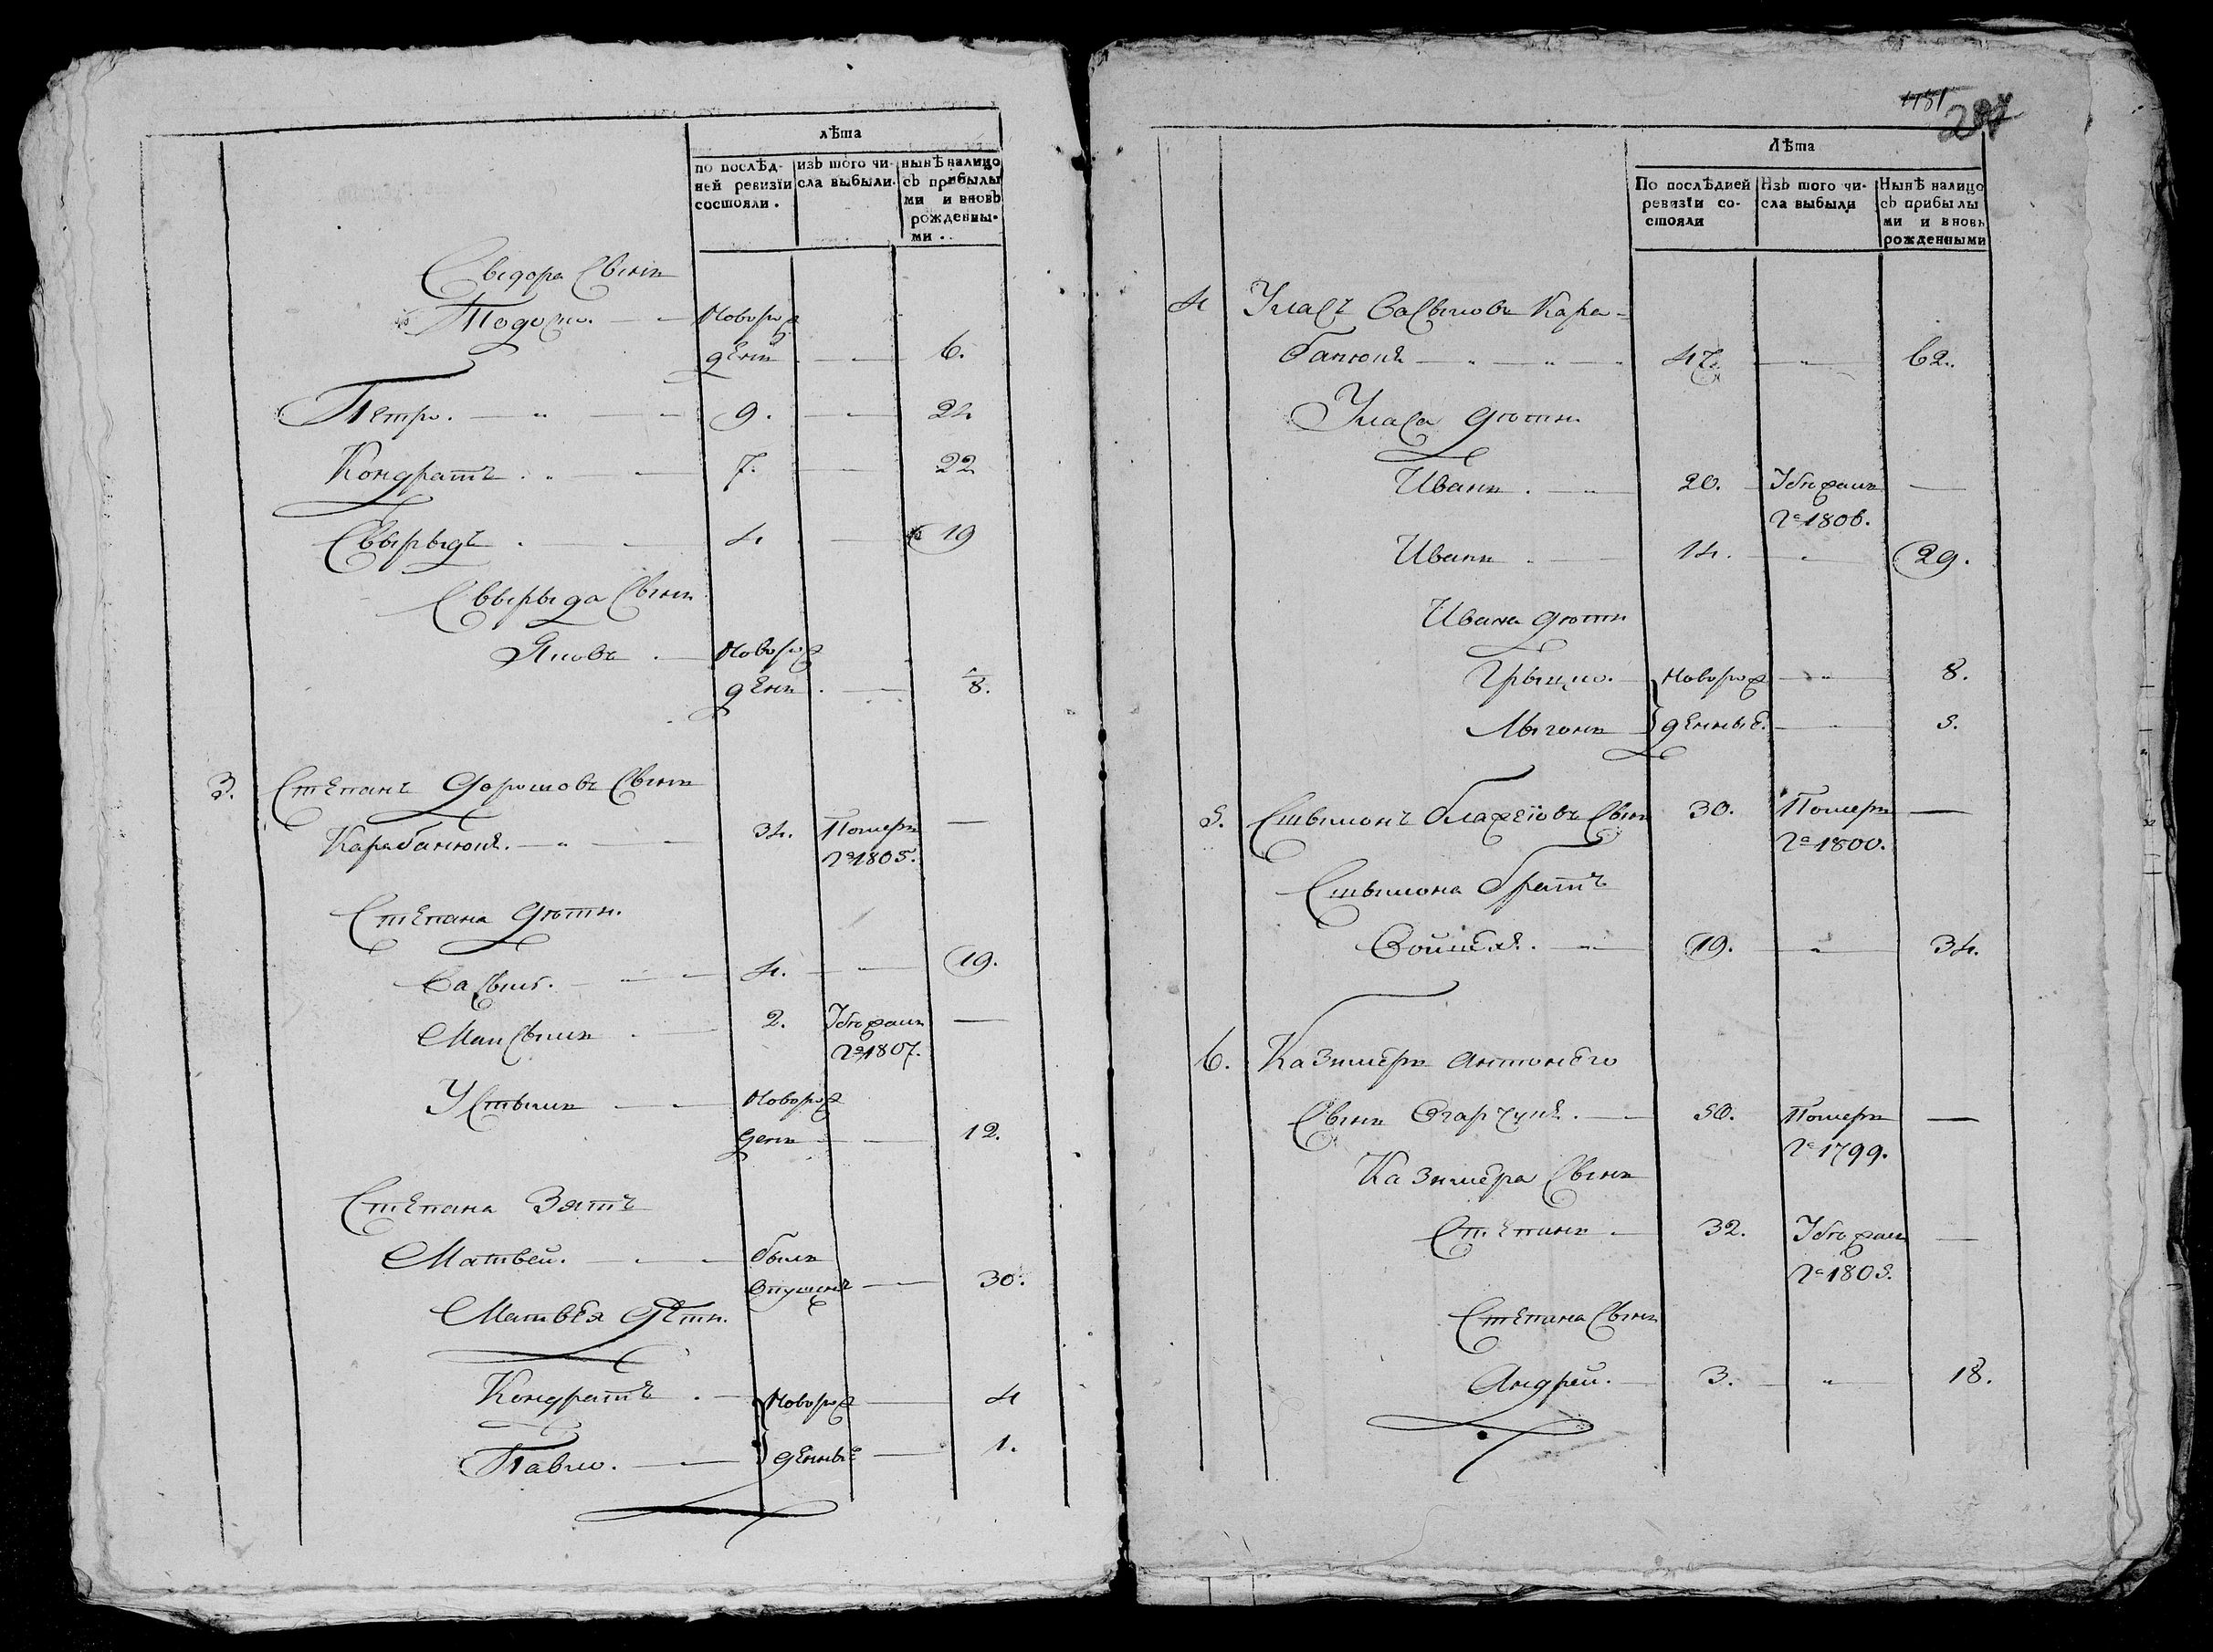 лѣта
по послѣд-
ней ревизіи
состояли.
изъ того чи-
сла выбыли.
нынѣ налицо
съ прибылы
ми и вновь
рожденны-
ми.
Сыдора Сынъ
Тодосъ. Новорож
денъ 6.
Петро. 9. 24
Кондратъ 7. 22
Свырыдъ 4 19
Свырыда Сынъ
Яковъ Новорож
денъ 8.
3. Степанъ Дорошовъ Сынъ
Карабанюкъ. 34. Померъ —
Го 1805.
Степана дѣти.
Васыль. 4. 19.
Максымъ 2. Убѣжалъ —
Го 1807.
Устымъ Новорож
денъ 12.
Степана Зять
Матвей. былъ
опущенъ 30.
Матвѣя Дѣти.
Кондратъ Новорож 4
Павло. денные 1.
1181
Лѣта
По послѣдней
ревизіи со-
стояли
Изъ того чи-
сла выбыли
Нынѣ налицо
съ прибылы
ми и вновь
рожденными
4 Уласъ Васыловъ Кара-
банюкъ 47. 62.
Уласа дѣти
Иванъ 20. Убѣжалъ —
Го 1806.
Иванъ 14. 29.
Ивана дѣти
Грыцко. Новорож 8.
денные. 5.
5. Сымонъ Блажеіовъ Сынъ 30. Померъ —
Го 1800.
Сымона братъ
Войтѣхъ. 19. 34.
6. Казимеръ Антонего
Сынъ 50. Померъ —
Го 1799.
Казимера Сынъ
Степанъ 32. Убѣжалъ —
Го 1805.
Степана Сынъ
Андрей. 3. 18.